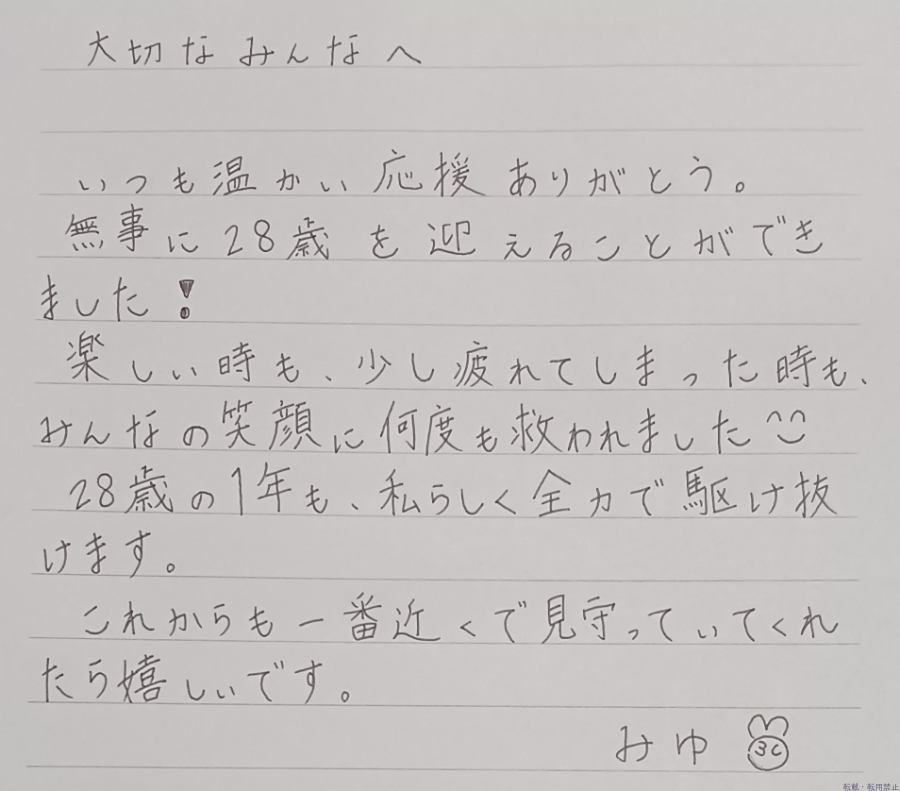 大切なみんなへ
いつも温かい応援ありがとう。
無事に28歳を迎えることができ
ました！
楽しい時も、少し疲れてしまった時も、
みんなの笑顔に何度も救われました
28歳の1年も、私らしく全力で駆け抜
けます。
これからも一番近くで見守っていてくれ
たら嬉しいです。
みゆ
転載・転用禁止